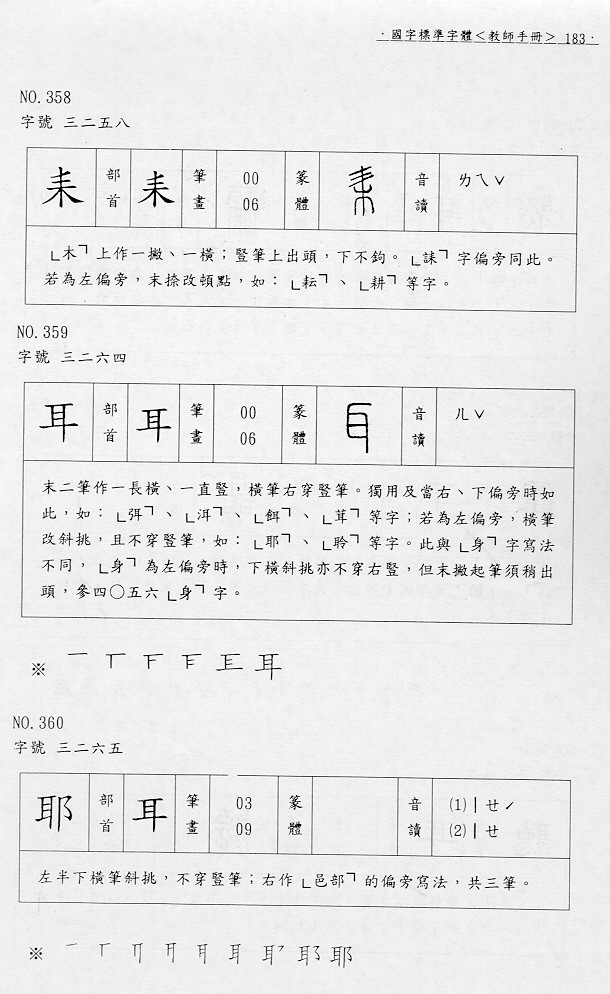 ·國字標準字體＜教師手冊＞ 183·
NO.358
字號 三二五八
耒 部首 耒 筆畫 00 06 篆體 耒 音讀 ㄌㄟˇ
「木」上作一撇、一橫；豎筆上出頭，下不鉤。「誄」字偏旁同此。
若為左偏旁，末捺改頓點，如：「耘」、「耕」等字。
NO.359
字號 三二六四
耳 部首 耳 筆畫 00 06 篆體 耳 音讀 ㄦˇ
末二筆作一長橫、一直豎，橫筆右穿豎筆。獨用及當右、下偏旁時如
此，如：「弭」、「洱」、「餌」、「茸」等字；若為左偏旁，橫筆
改斜挑，且不穿豎筆，如：「耶」、「聆」等字。此與「身」字寫法
不同，「身」為左偏旁時，下橫斜挑亦不穿右豎，但末撇起筆須稍出
頭，參四〇五六「身」字。
※ 耳
NO.360
字號 三二六五
耶 部首 耳 筆畫 03 09 篆體 音讀 (1)ㄧㄝˊ (2)ㄧㄝ
左半下橫筆斜挑，不穿豎筆；右作「邑部」的偏旁寫法，共三筆。
※ 耶